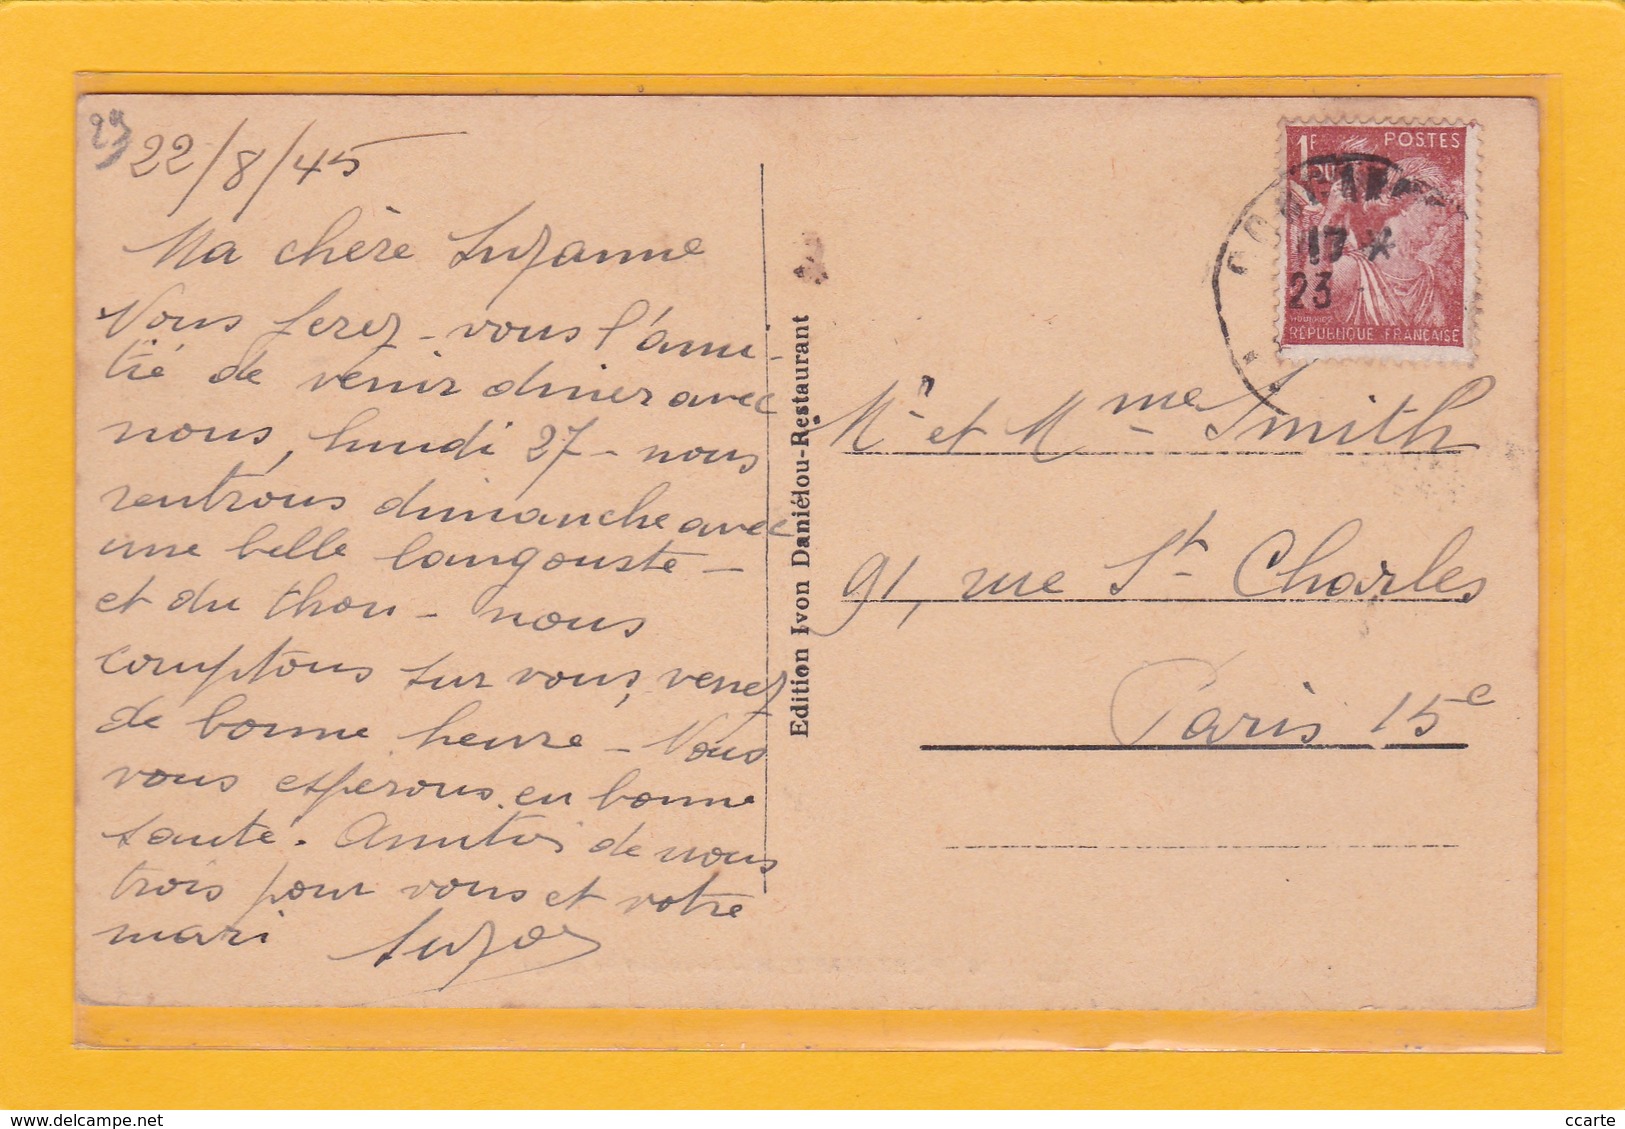 22/8/45
Ma chère Suzanne
Vous serez-vous l'ami-
tié de venir diner avec
nous, lundi 27 - nous
rentrons dimanche avec
une belle langouste -
et du thon - nous
comptons sur vous, venez
de bonne heure - Nous
vous espérons en bonne
santé. Amitiés de nous
trois pour vous et votre
mari
Edition Ivon Daniélou-Restaurant
1F
POSTES
17 *
23
RÉPUBLIQUE FRANÇAISE
Mr et Mme Smith
91, rue St Charles
Paris 15e
ccarte